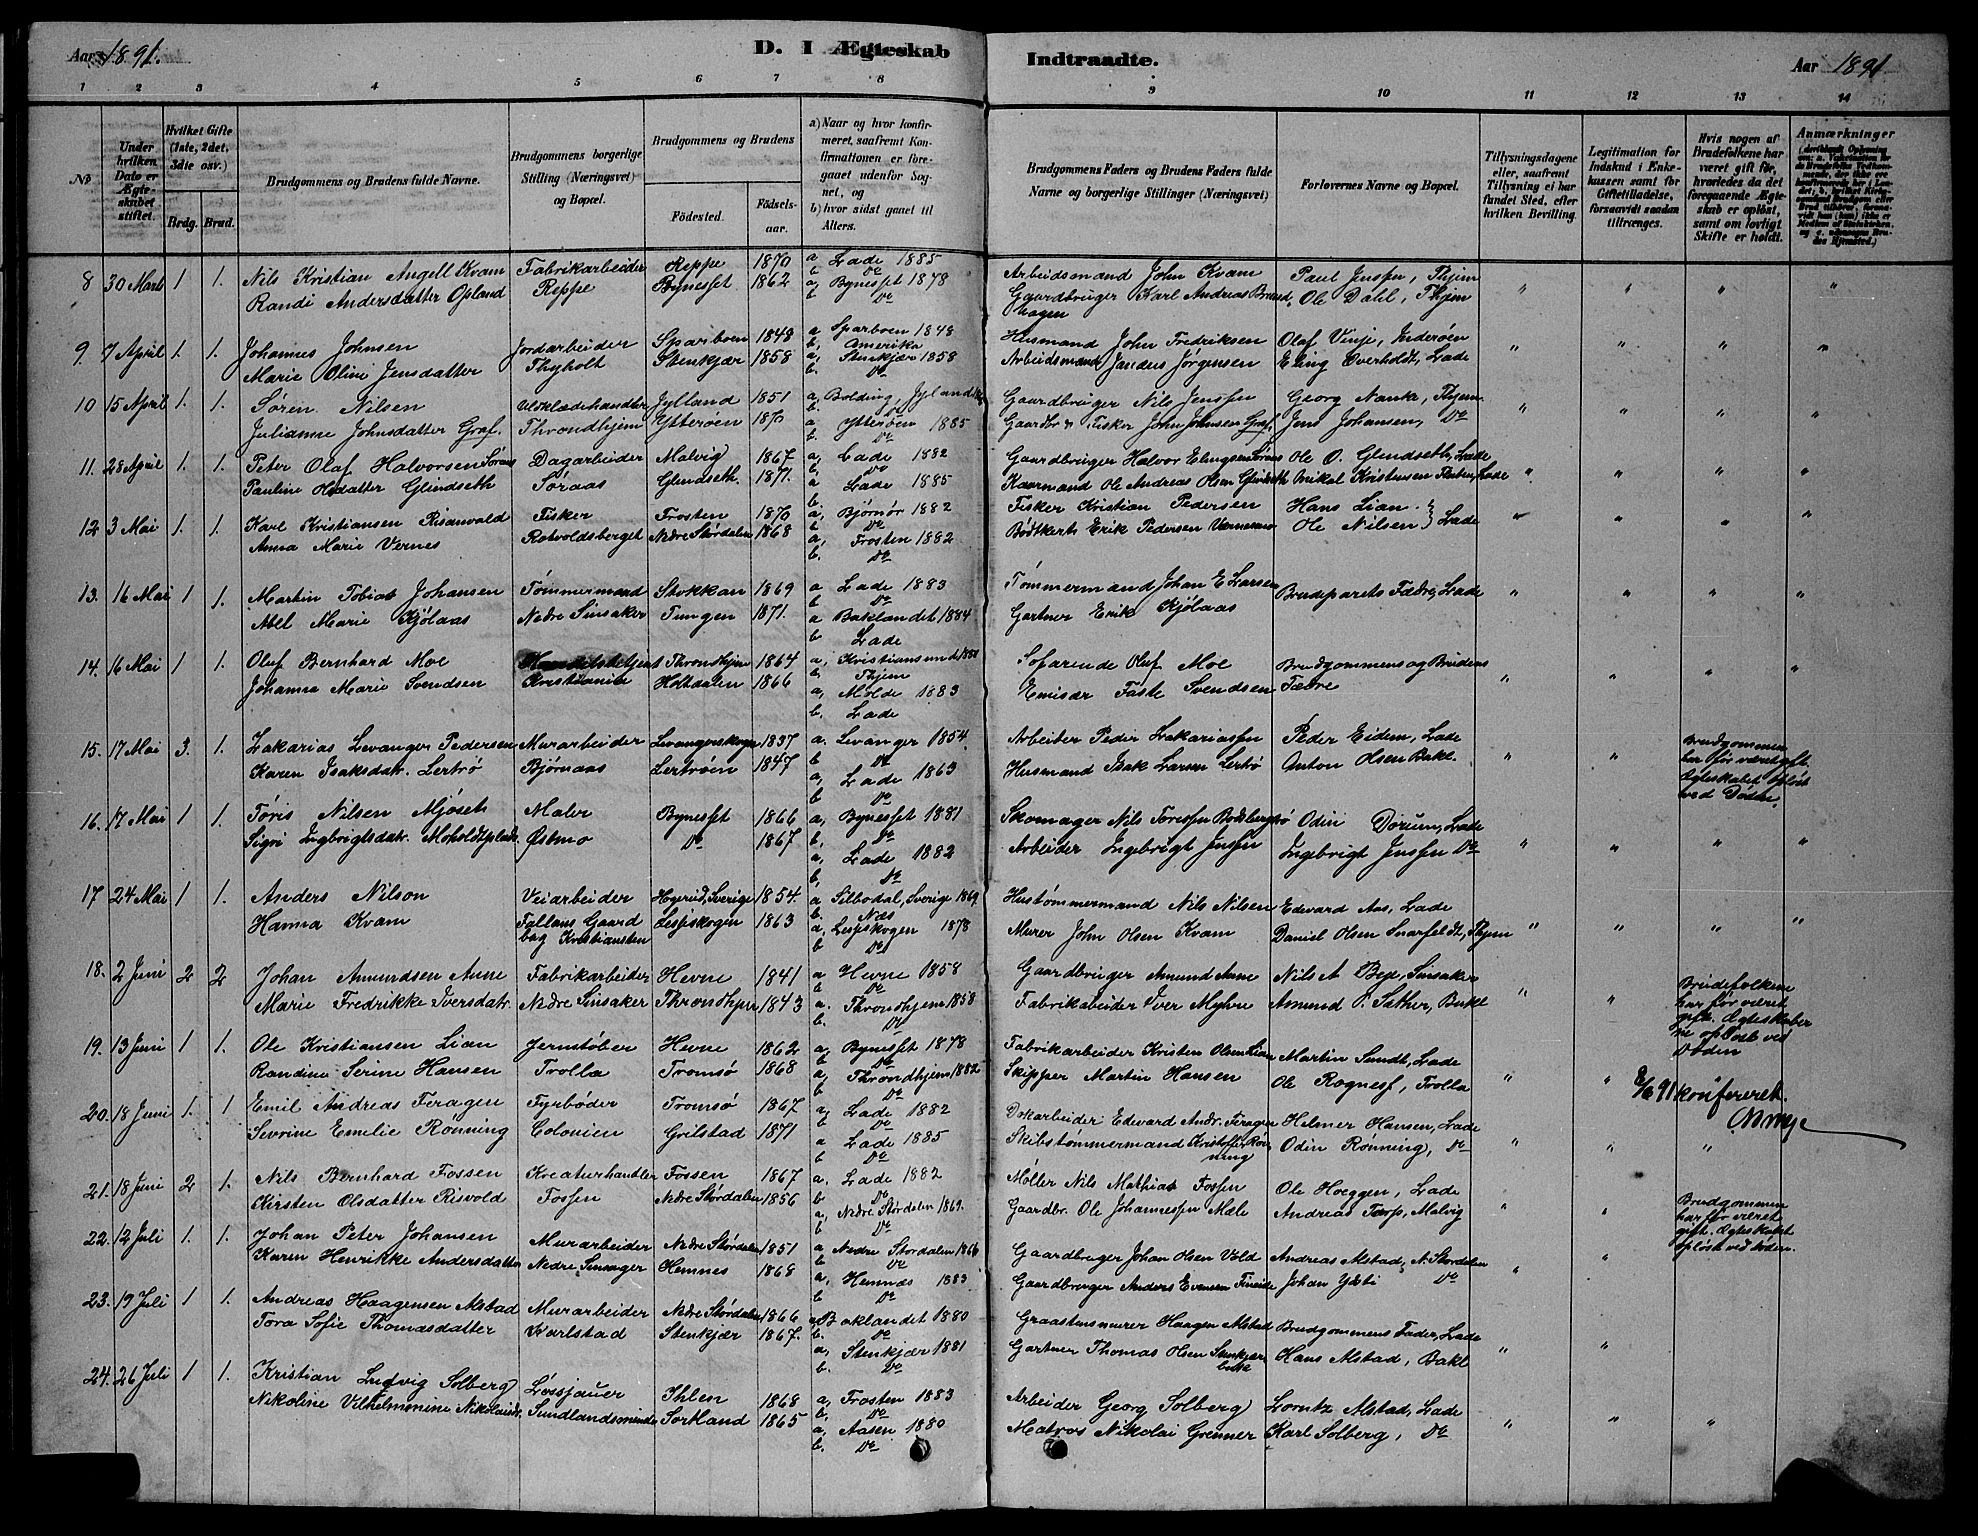 Aar 1891.
D. I Ægteskab Indtraadte.
Aar 1891
1 2 3 4 5 6 7 8 9 10 11 12 13 14
No
Under hvilken Dato er Ægteskabet stiftet.
Hvilket Gifte (1ste, 2det, 3die osv.)
Brdg. Brud.
Brudgommens og Brudens fulde Navne.
Brudgommens borgerlige Stilling (Næringsvei) og Bopæl.
Brudgommens og Brudens
Fødested. Fødselsaar.
a) Naar og hvor konfirmeret, saafremt Konfirmationen er foregaaet udenfor Sognet, og
b) hvor sidst gaaet til Alters.
Brudgommens Faders og Brudens Faders fulde Navne og borgerlige Stillinger (Næringsvei)
Forlovernes Navne og Bopæl.
Tillysningsdagene eller, saafremt Tillysning ei har fundet Sted, efter hvilken Bevilling.
Legitimation for Indskud i Enkekassen samt for Giftetilladelse, forsaavidt saadan tiltrænges.
Hvis nogen af Brudefolkene har været gift før, hvorledes da det foregaaende Ægteskab er opløst, samt om lovligt Skifte er holdt.
Anmærkninger
8 30 Marts 1 1. Nils Kristian Angell Kvam Fabrikarbeider Reppe 1870 a Lade 1885 b Do Arbeidsmand John Kvam Paul Jensen, Thjem
Randi Andersdatter Opland Reppe Bynesset 1862 a, Bynesset 1878 b Do Gaardbruger Karl Andreas Brandhagen Ole Dahl, Thjem
9. 7 April 1. 1. Johannes Johnsen Jordarbeider Sparboen 1848 a Sparboen 1848 b, Amerika Husmand John Fredriksen Olaf Vinje, Inderøen
Marie Oline Jensdatter Thyholt Stenkjær 1858 a, Stenkjær 1858 b. Do Arbeidsmand Jørgensen Eling Overholdt, Lade
10 15 April 1. 1. Søren Nilsen Uldklædehandler Jylland 1851 a, Jylland b. Do Gaardbruger Nils Jensen Georg Nank, Thjem.
Johnsdatter Graf. Throndhjem Ytterøen 1870 a Ytterøen 1885 b Do Fisker John Johnsen Graf, Jens Johansen, Do
11. 28 April 1. 1. Peter Olaf Halvorsen Søraas Dagarbeider Malvig 1867 a, Lade 1882 b, Do Gaardbruger Halvor Elingsen Søraas Ole O. Glendseth, Lade
Pauline Olsdatter Glendseth Søraas Glendseth. 1871. a Lade 1885 b. Kaarmand Ole Andreas Olsen Glendseth Mikal Kristensen Lade
12 3 Mai 1. 1. Karl Kristiansen Risanvald Fisker Frosten 1870 a, Bjørnør 1882 b Do Fisker Kristian Pedersen Hans Lian.
Anna Marie Vernes Rotvoldsberget Nedre Størdalen 1868 a, Frosten 1882 b. Do Erik Pedersen Ole Nilsen } Lade
13. 16 Mai 1 1. Martin Tobias Johansen Tømmermand Stokkan 1869 a Lade 1883 b Do Tømmermand Johan E Larsen Brudeparets Fædre, Lade
Abel Marie Kjølaas Nedre Sinsaker Tungen 1871. a Baklandet 1884 b. Lade Gartner Erik Kjølaas
14. 16 Mai 1 1. Oluf Bernhard Moe Handelsbetjent Throndhjem 1864 a, Kristiansund b Thjem Sofarende Oluf Moe Brudgommens og Brudens Fædre
Johanna Marie Svendsen Kristiania Holtdalen 1866 a, Molde 1883 b. Lade Emisær Faste Svendsen
15. 17 Mai 3. 1. Zakarias Levanger Pedersen Murarbeider Levangerskogen 1837 a. Levanger 1854. b Do Arbeiber Peder Zakariassen Peder Eidem, Lade Brudgommen har før været gift. Ægteskabet opløst ved Døden.
Karen Isaksdatr. Lertrø Bjørnaas Lertrøen 1847 a, Lade 1863 b Do Husmand Isak Larsen Lertrø Anton Olsen Bakl.
16. 17 Mai 1 1. Tøris Nilsen Mjøseth Maler Bynesset 1866 a, Bynesset 1881 b. Do Skomager Nils Odin Dorum, Lade
Sigri Ingbrigtsdatr. Moholdtplads Østmo Do 1867 a, Lade 1882 b, Do Arbeider Ingebrigt Jensen Ingebrigt Jensen Do
17 24 Mai 1 1. Anders Nilson Veiarbeider Sverige 1854. a Silbodal, Sverige 1869. b Næs Hustømmermand Nils Nilsen Edevard Aas, Lade
Hanna Kvam Fallans Gaard bag Kristiansten Lesjeskogen 1863 a, Lesjeskogen 1878 b Do Murer John Olsen Kvam Daniel Olsen Snarfeldt, Thjem
18. 2 Juni 2 2 Johan Amundsen Aune Fabrikarbeider Hevne 1841 a Hevne 1858 b Do Gaardbruger Amund Aune Nils A Bye, Sinsaker Brudefolkene har før været gift. Ægteskaberne opløst ved Døden
Marie Fredrikke Iversdatr. Nedre Sinsaker Throndhjem 1843 a. Throndhjem 1858 b. Do Fabrikabeider Iver Myhre Amund P. Sæther, Bakl
19. 13 Juni 1 1. Ole Kristiansen Lian Jernstøber Hevne 1862 a, Bynesset 1878 b Do Fabrikarbeider Kristen Olsen Lian Martin Sundt, Lade
Randine Serine Hansen Trolla Tromsø 1868 a, Throndhjem 1882 b, Do Skipper Martin Hansen Ole Rognes, Trolla 8/6 91 konfereret.
20. 18 Juni 1. 1 Emil Andreas Feragen Fyrbøder Tromsø 1867 a, Lade 1882 b Do Dokarbeider Edevard Andr. Feragen Helmer Hansen, Lade
Sevrine Emelie Rønning Colonien Grilstad 1871 a Lade 1885 b Do Skibstømmermand Kristoffer Rønning Odin Rønning, Do
21. 18 Juni 2 1. Nils Bernhard Fossen Kreaturhandler Fossen 1867 a. Lade 1882 b, Do Møller Nils Mathias Fossen Ole Hoeggen, Lade Brudgommen har før været gift. Ægteskabet opløst ved Døden.
Kirsten Olsdatter Risvold Fossen Nedre Størdalen 1856 a, Nedre Størdalen 1869. b Do Gaardbr. Ole Johannessen Mæle Andreas Torp, Malvig
22. 12 Juli 1. 1. Johan Peter Johansen Murarbeider Nedre Størdalen 1851 a Nedre Stordalen 1866 b Do Gaardbruger Johan Olsen Vold Andreas Alstad, N. Stordalen
Karen Henrikke Andersdatter Nedre Sinsager Hemnes 1868 a, Hemnæs 1883 b. Do Gaardbruger Anders Evensen Johan Ysti Do
23. 19 Juli 1 1. Andreas Haagensen Alstad Murarbeider Nedre Størdalen 1866 a, Baklandet 1880 b. Do Graastensmurer Haagen Alstad Brudgommens Fader, Lade
Tora Sofie Thomasdatter Karlstad Stenkjær 1867. a, Stenkjær 1881 b. Do Gartner Thomas Olsen Hans Alstad, Bakl
24. 26 Juli 1 1. Kristian Ludvig Solberg Løssjauer Ihlen 1868 a, Frosten 1883 b. Do Arbeider Georg Solberg Lorntz Alstad, Lade
Nikoline Vilhelmenine Nikolaisdr. Sundlandsminde Sortland 1865 a, Aasen 1880 b. Do Matros Nikolai Grenner Karl Solberg, Do